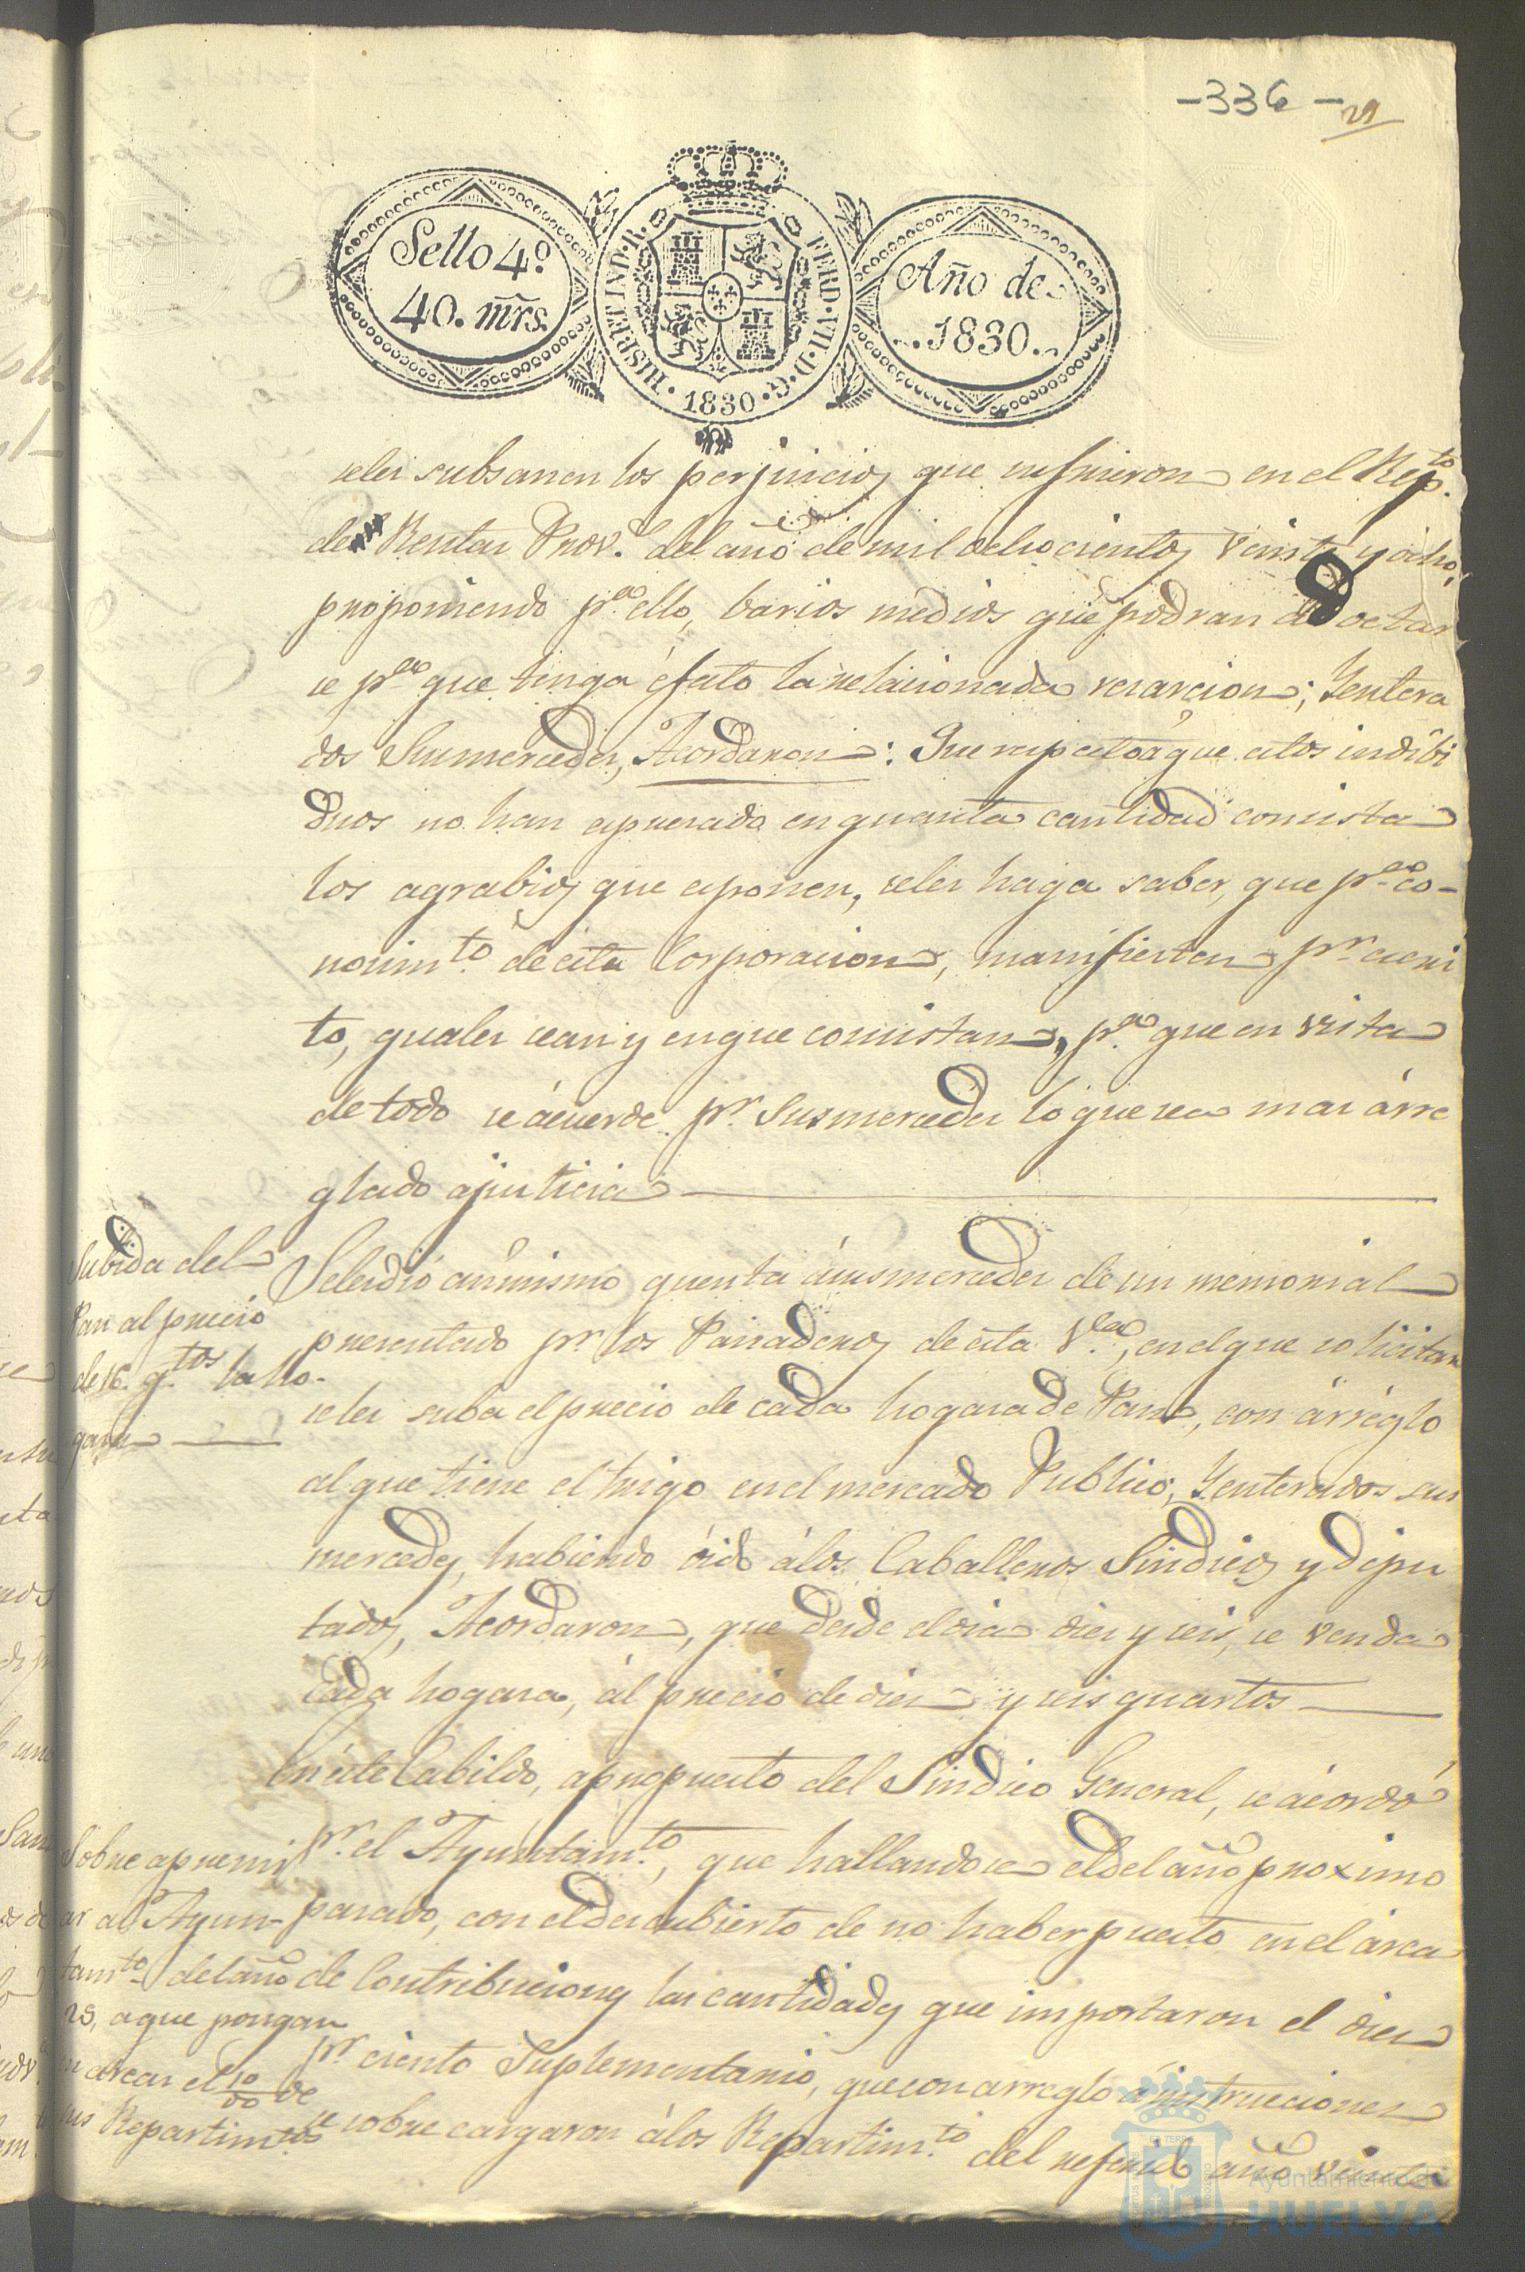 -336-
21
Sello 4º
40. mrs.
HISP. ET IND. R. FERD. VII. D. G. 1830
Año de
1830.
seles subsanen los perjuicios que sufrieron en el Rep.to
de Rentas Prov.s del año de mil ochocientos veinte y ocho,
proponiendo p.a ello, barios medios que podran adoctar
se p.a que tenga éfeto la relacionada resarcion; Yentera
dos Susmercedes, Acordaron: Que respeto á que estos indibi
duos no han espresado en quanta cantidad consista
los agrabios que esponen, seles haga saber, que p.a co-
nocim.to de esta Corporacion, manifiesten p.r escri
to, quales sean y en que consistan, p.a que en vista
de todo se ácuerde p.r Susmercedes lo que sea mas árre
glado ajusticia
Subida del
Pan al precio
de 16. q.tos la ho-
gaza
Selesdió asímismo quenta ásusmercedes de un memorial
presentado p.r los Panaderos de esta V.a, en el que solicitan
seles suba el precio de cada hogaza de Pan, con árréglo
al que tiene el trigo en el mercado Publico; Yenterados sus
mercedes, habiendo óido álos Caballeros Sindicos y dipu
tados, Acordaron, que desde el dia dies y seis, se venda
Cada hogasa, ál precio de dies y seis quartos
En éste Cabildo, apropuesto del Sindico General, se ácordó
p.r el Ayuntam.to, que hallandose el del año proximo
pasado, con el descubierto de no haber puesto en el árca
de Contribuciones las cantidades que importaron el dies
p.r ciento Suplementario, que con arreglo ainstrucciones
se sobre cargaron álos Repartim.to del referido año veinte
Sobre apremi
ar al Ayun-
tam.to del año
28, a que pongan
en arcas el 10 de
sus Repartim.tos
Ayuntamiento de
HUELVA